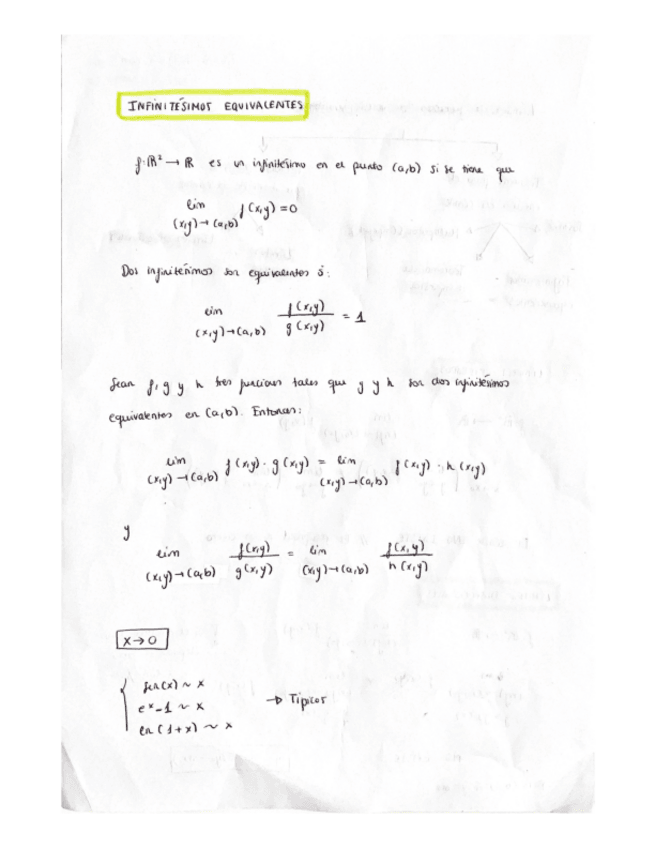 INFINITÉSIMOS EQUIVALENTES
f: ℝ² → ℝ es un infinitésimo en el punto (a,b) si se tiene que
lim f(x,y) = 0
(x,y) → (a,b)
Dos infinitésimos son equivalentes si:
lim f(x,y)/g(x,y) = 1
(x,y) → (a,b)
Sean f, g y h tres funciones tales que g y h son dos infinitésimos
equivalentes en (a,b). Entonces:
lim f(x,y) · g(x,y) = lim f(x,y) · h(x,y)
(x,y) → (a,b) (x,y) → (a,b)
y
lim f(x,y)/g(x,y) = lim f(x,y)/h(x,y)
(x,y) → (a,b) (x,y) → (a,b)
x → 0
sen(x) ~ x
eˣ - 1 ~ x → Típicos
ln(1+x) ~ x